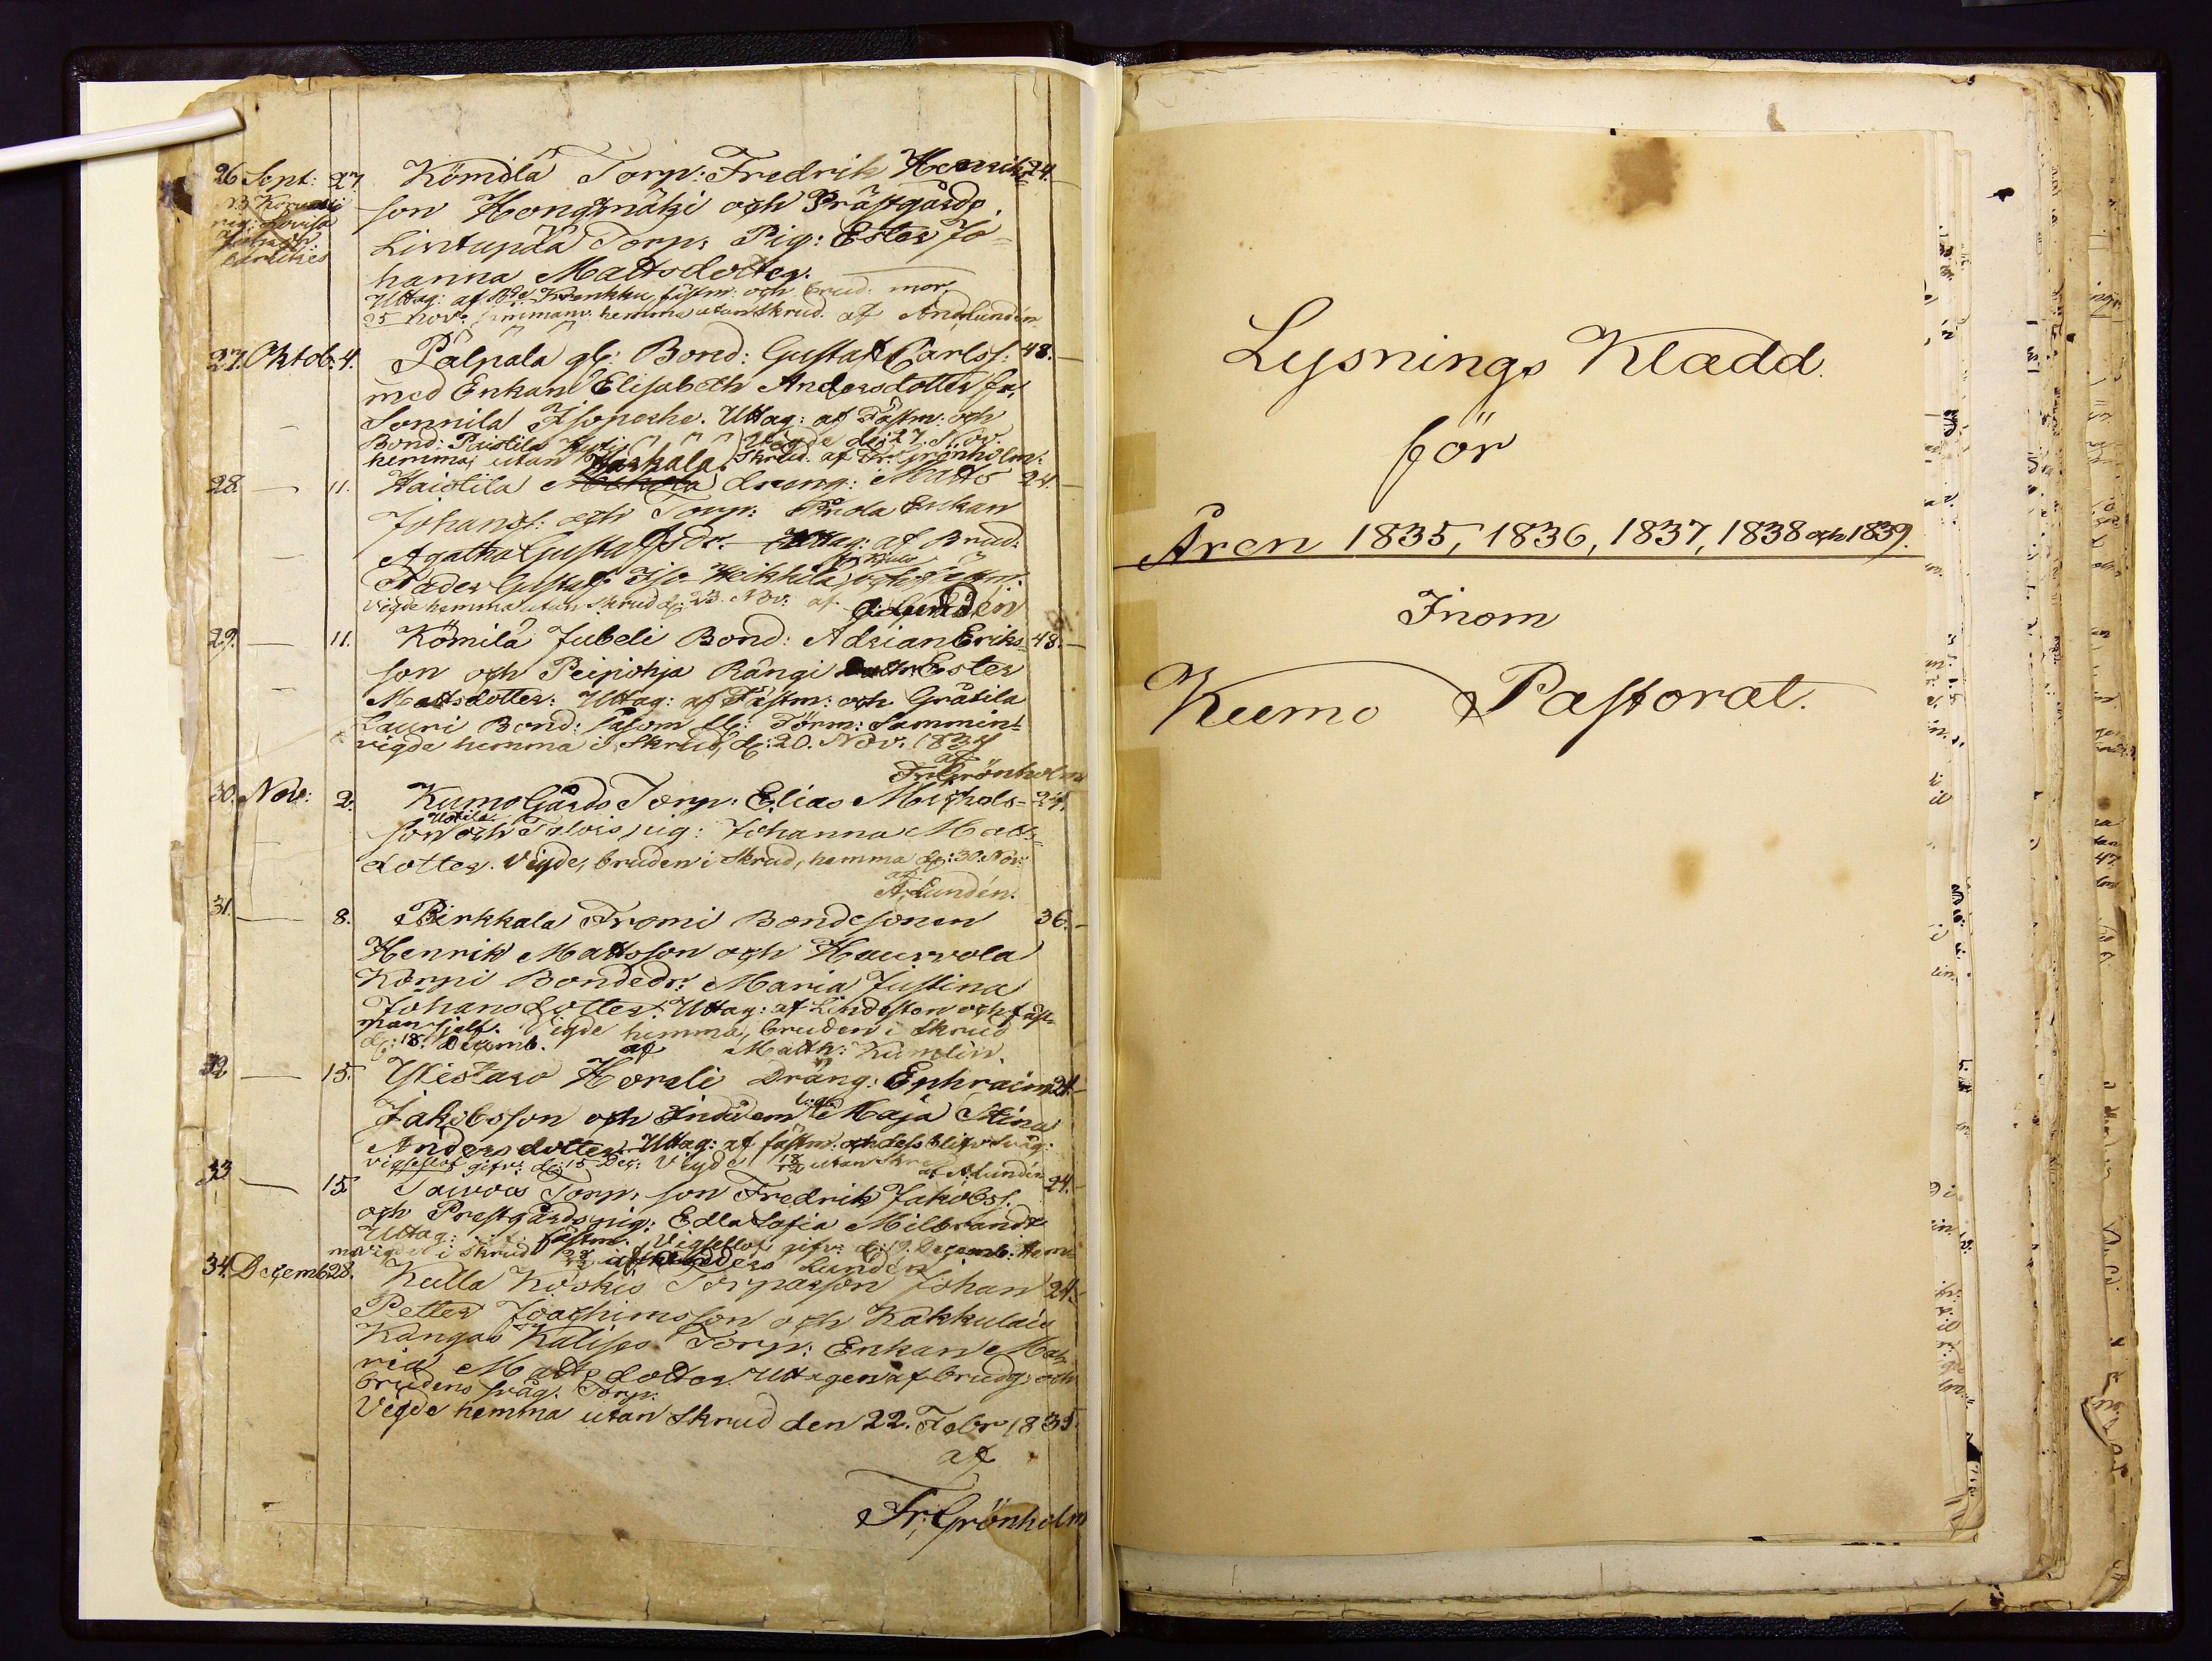 26 Sept: 27. Kömilä Torp: Fredrik Henriks- 24.
son Hongomäki och Prästgårds
Lintupää Torp: Pig: Ester Jo=
hanna Mattsdotter.
Uttag: af fästm: och brud. mor.
25 Nov: hemma utan Skrud. af And. Lundén
27. Oktob: 4. Pälpälä gl: Bond: Gustaf Carlss: 48.
med Enkan Elisabeth Andersdotter fr.
Sonnila Isopeshe. Uttag: af Fästm: och
Bond: Paistila Vigde d: 27. Nov.
hemma, utan Skrud. af Fr: Grönholm.
28. — 11. Haistila Haskala dreng: Matts 24.
Johanss: och Torp: Enkan
Agatha Gustafsdr. Uttag: af Brud.
Fader Gustaf Iso Heikkilä och Fästm.
vigde hemma utan Skrud d: 23. Nov: af A: Lundén
29. — 11. Kömilä Jubeli Bond: Adrian Eriks- 48.
son och Peipohja Rängi Ester
Mattsdotter: Uttag: af Fästm: och Gråtila
Lauri Bond: såsom Förm: Samman-
vigde hemma i Skrud, d: 20. Nov. 1834
af
Fr: Grönholm
30. Nov: 2. Kumo Gårds Torp: Elias Michels- 24.
Uotila
son och Talvis pig: Johanna Matts
dotter. Vigde, bruden i Skrud, hemma d: 30. Nov:
af
A: Lundén.
31. — 8. Pirkkala Fromi Bondesonen 36.
Henrik Mattsson och Hauvvola
Korpi Bondedr: Maria Justina
Johansdotter. Uttag: af Lindsten och fäst-
man sjelf. Vigde hemma, bruden i Skrud
d: 18. Decemb. af Math: Kumlin.
32 — 15. Ylistaro Horeli Dräng: Ephraim 24.
Jakobsson och Maja Stina
Andersdotter. Uttag: af fästm: och dess
Vigselat gifv: d: 15 Dec: Vigde utan Skr af A: Lundén
33 — 15. Torp: son Fredrik Jakobss. 24.
och Prestgårds pig: Edla Sofia Milbrandt
Uttag: fästm. Vigsellof gifv: d: 19. Decemb: Hem
ma vigde i Skrud af Anders Lundén
34. Decemb 28. Kulla Koskis Torparson Johan 24.
Petter Joachimsson och Kakkulais
Kangas Kalisos Torp: Enkan Ma
ria Mattsdotter. Uttagen af brudg: och
brudens svåg. Torp:
Vigde hemma utan Skrud den 22. Febr 1835.
af
Fr: Grönholm
Lysnings Kladd.
för
Åren 1835, 1836, 1837, 1838 och 1839.
Inom
Kumo Pastorat.